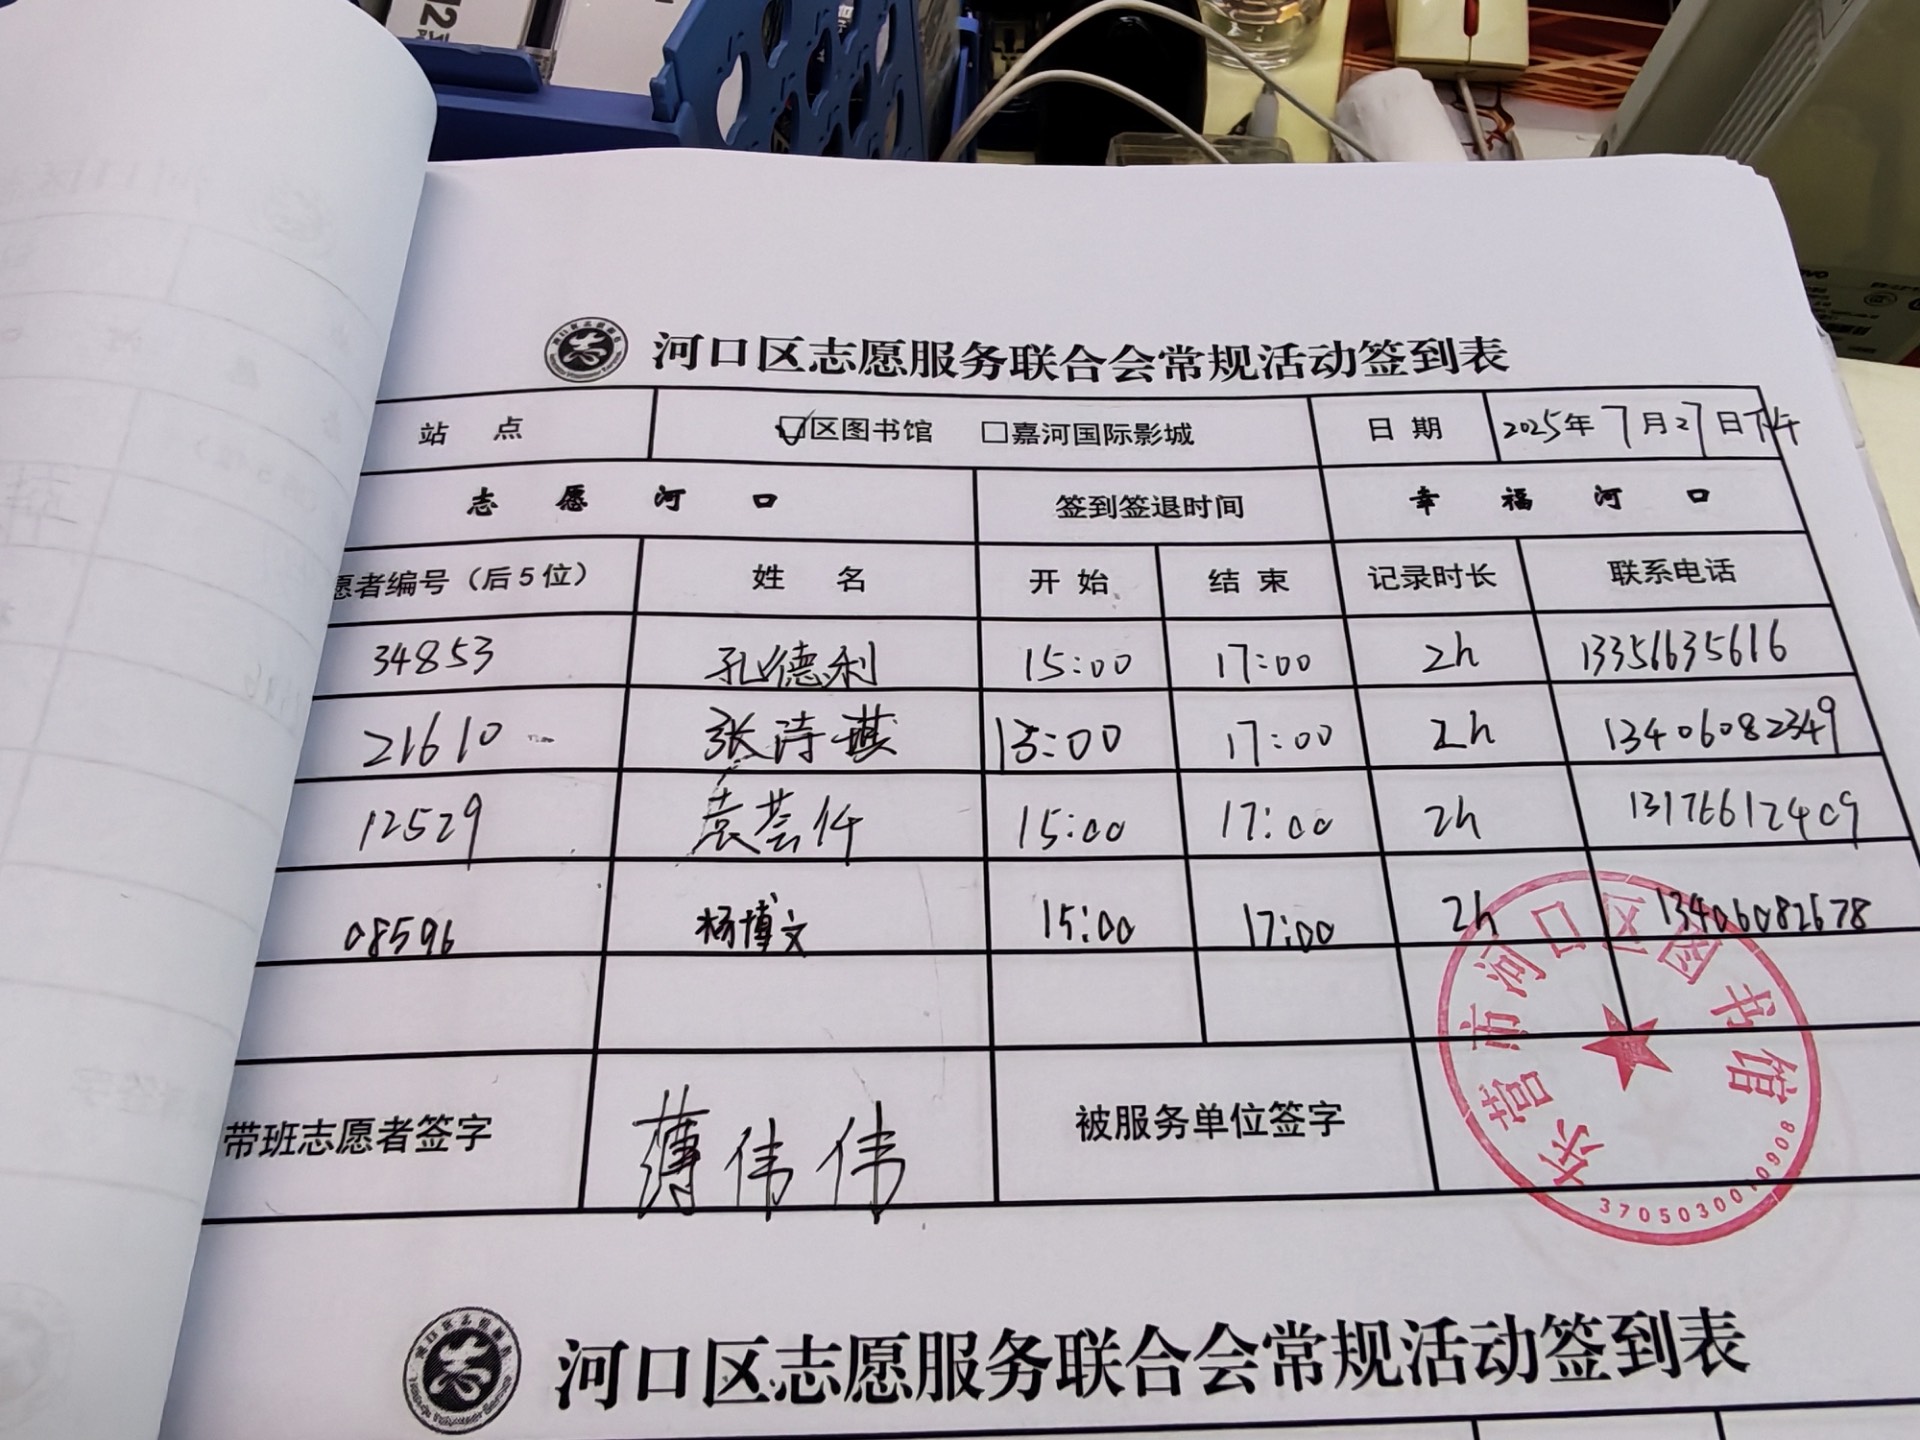 河口区志愿服务联合会常规活动签到表
站 点 ☑区图书馆 □嘉河国际影城 日 期 2025年7月27日下午
志 愿 河 口 签到签退时间 幸 福 河 口
愿者编号（后5位） 姓 名 开 始 结 束 记录时长 联系电话
34853 孔德利 15:00 17:00 2h 13351635616
21610 张诗琪 15:00 17:00 2h 13406082349
12529 袁芸仟 15:00 17:00 2h 13176612409
08596 杨博文 15:00 17:00 2h 13406082678
带班志愿者签字 薄伟伟 被服务单位签字
东营市河口区图书馆
3705030010908
河口区志愿服务联合会常规活动签到表